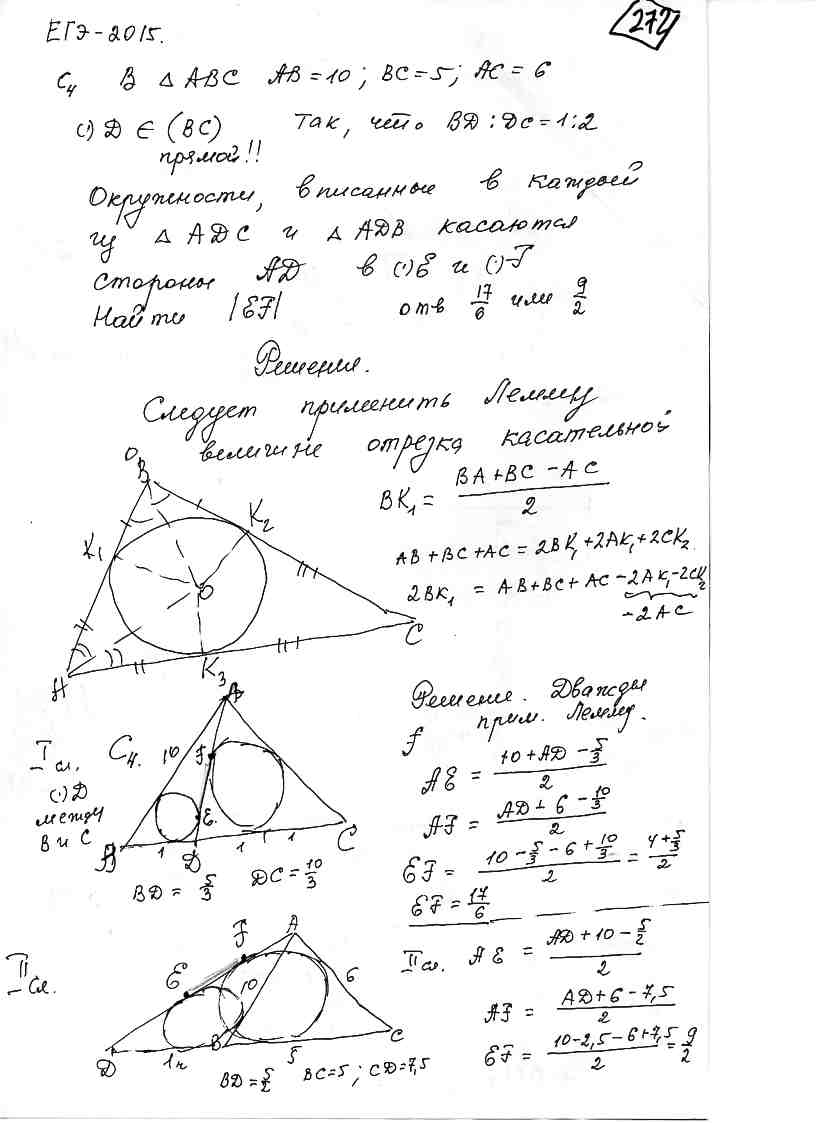 272
ЕГЭ-2015.
C₄ В △ ABC AB = 10 ; BC = 5; AC = 6
(·) D ∈ (BC) Так, что BD : DC = 1:2
прямой!!
Окружности, вписанные в каждый
из △ ADC и △ ADB касаются
стороны AD в (·) E и (·) F
Найти |EF| отв 17/6 или 9/2
Решения.
Следует применить Лемму
о величине отрезка касательной
B
K₁
K₂
O
C
A
K₃
BK₁ = (BA + BC - AC)/2
AB + BC + AC = 2BK₁ + 2AK₁ + 2CK₂
2BK₁ = AB + BC + AC - 2AK₁ - 2CK₂
-2AC
I сл. C₄.
(·) D
между
B и C
A
10
F
E
B
1
D
1
1
C
BD = 5/3 DC = 10/3
Решение. Дважды
прим. Лемму.
AE = (10 + AD - 5/3)/2
AF = (AD + 6 - 10/3)/2
EF = (10 - 5/3 - 6 + 10/3)/2 = (4 + 5/3)/2
EF = 17/6
II сл.
A
F
E
10
6
D
B
5
C
BD = 5/2 BC = 5 ; CD = 7,5
II сл. AE = (AD + 10 - 5/2)/2
AF = (AD + 6 - 7,5)/2
EF = (10 - 2,5 - 6 + 7,5)/2 = 9/2